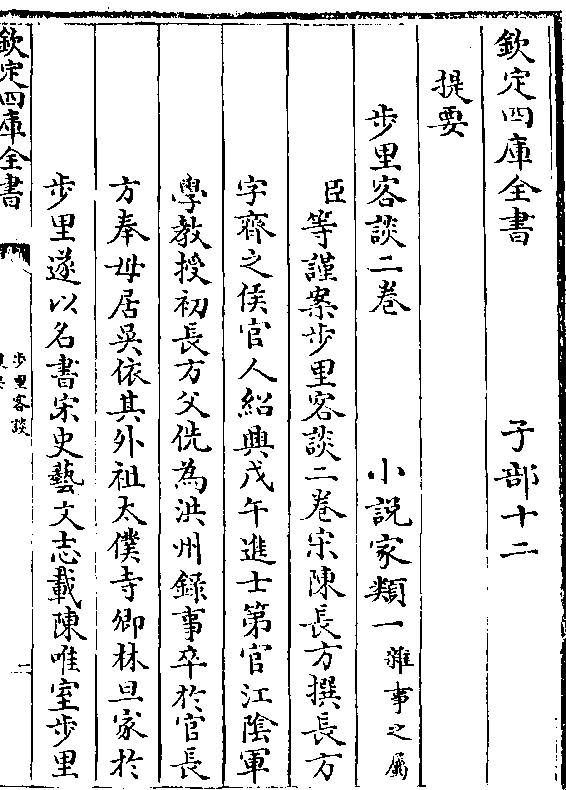 欽定四庫全書　子部十二
提要　小說家類一雜事之屬
步里客談二卷
臣等謹案步里客談二卷宋陳長方撰長方
字齊之侯官人紹興戊午進士第官江陰軍
學教授初長方父侁為洪州錄事卒於官長
方奉母居吳依其外祖太僕寺卿林旦家於
步里遂以名書宋史藝文志載陳唯室步里
欽定四庫全書
步里客談